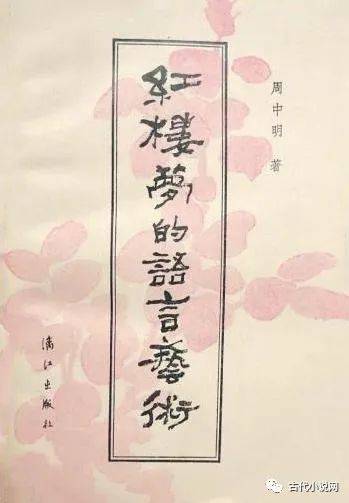 周中明 著
紅樓夢的語言藝術
漓江出版社
古代小说网